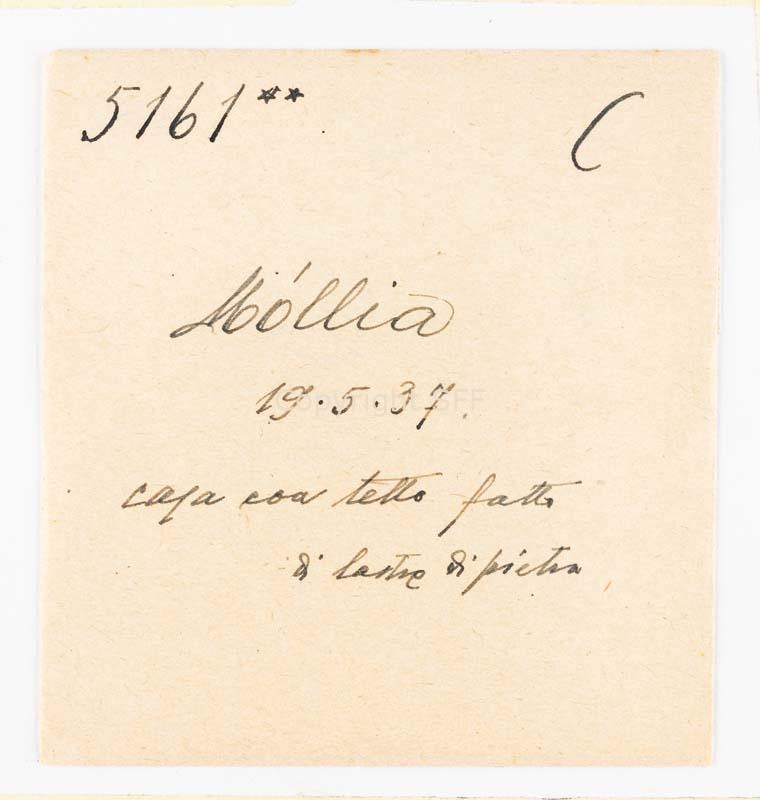 5161** C
Móllia
19.5.37.
copyright SFF
casa con tetto fatto
di lastre di pietra